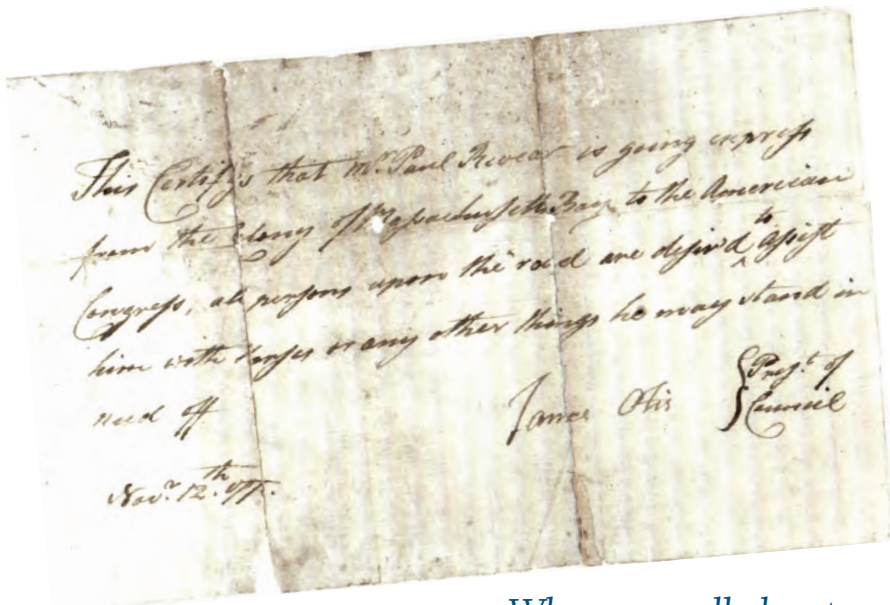 This Certifys that Mr. Paul Revear is going express
from the Colony of Massachusetts Bay to the American
Congress, all persons upon the road are desired to assist
him with horses or any other things he may stand in
need off
James Otis { Prest. of
Council
Novr. 12th.